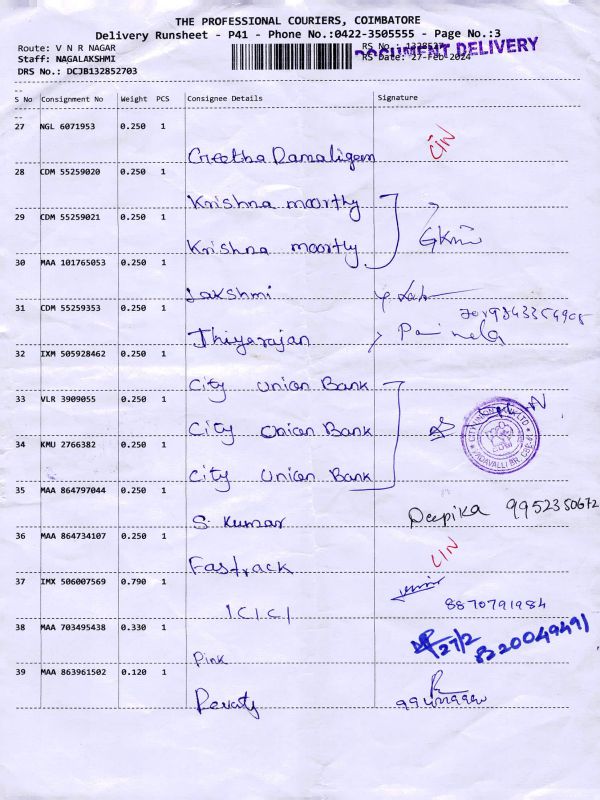 THE PROFESSIONAL COURIERS, COIMBATORE
Delivery Runsheet - P41 - Phone No.:0422-3505555 - Page No.:3
Route: V N R NAGAR
RS No.: 1328527
DOCUMENT DELIVERY
Staff: NAGALAKSHMI
RS Date: 27-Feb-2024
DRS No.: DCJB132852703
S No Consignment No Weight PCS Consignee Details Signature
27 NGL 6071953 0.250 1
Geetha Damaligem
LIN
28 CDM 55259020 0.250 1
Krishna moorthy
29 CDM 55259021 0.250 1
Krishna moorthy
30 MAA 101765053 0.250 1
Lakshmi
31 CDM 55259353 0.250 1
Thiyarajan
32 IXM 505928462 0.250 1
City Union Bank
33 VLR 3909055 0.250 1
City Union Bank
34 KMU 2766382 0.250 1
City Union Bank
35 MAA 864797044 0.250 1
S. Kumar Deepika 9952350672
36 MAA 864734107 0.250 1
Fastrack LIN
37 IMX 506007569 0.790 1
ICICI 8870791984
38 MAA 703495438 0.330 1
Pink 27/2 8220049491
39 MAA 863961502 0.120 1
Revaty